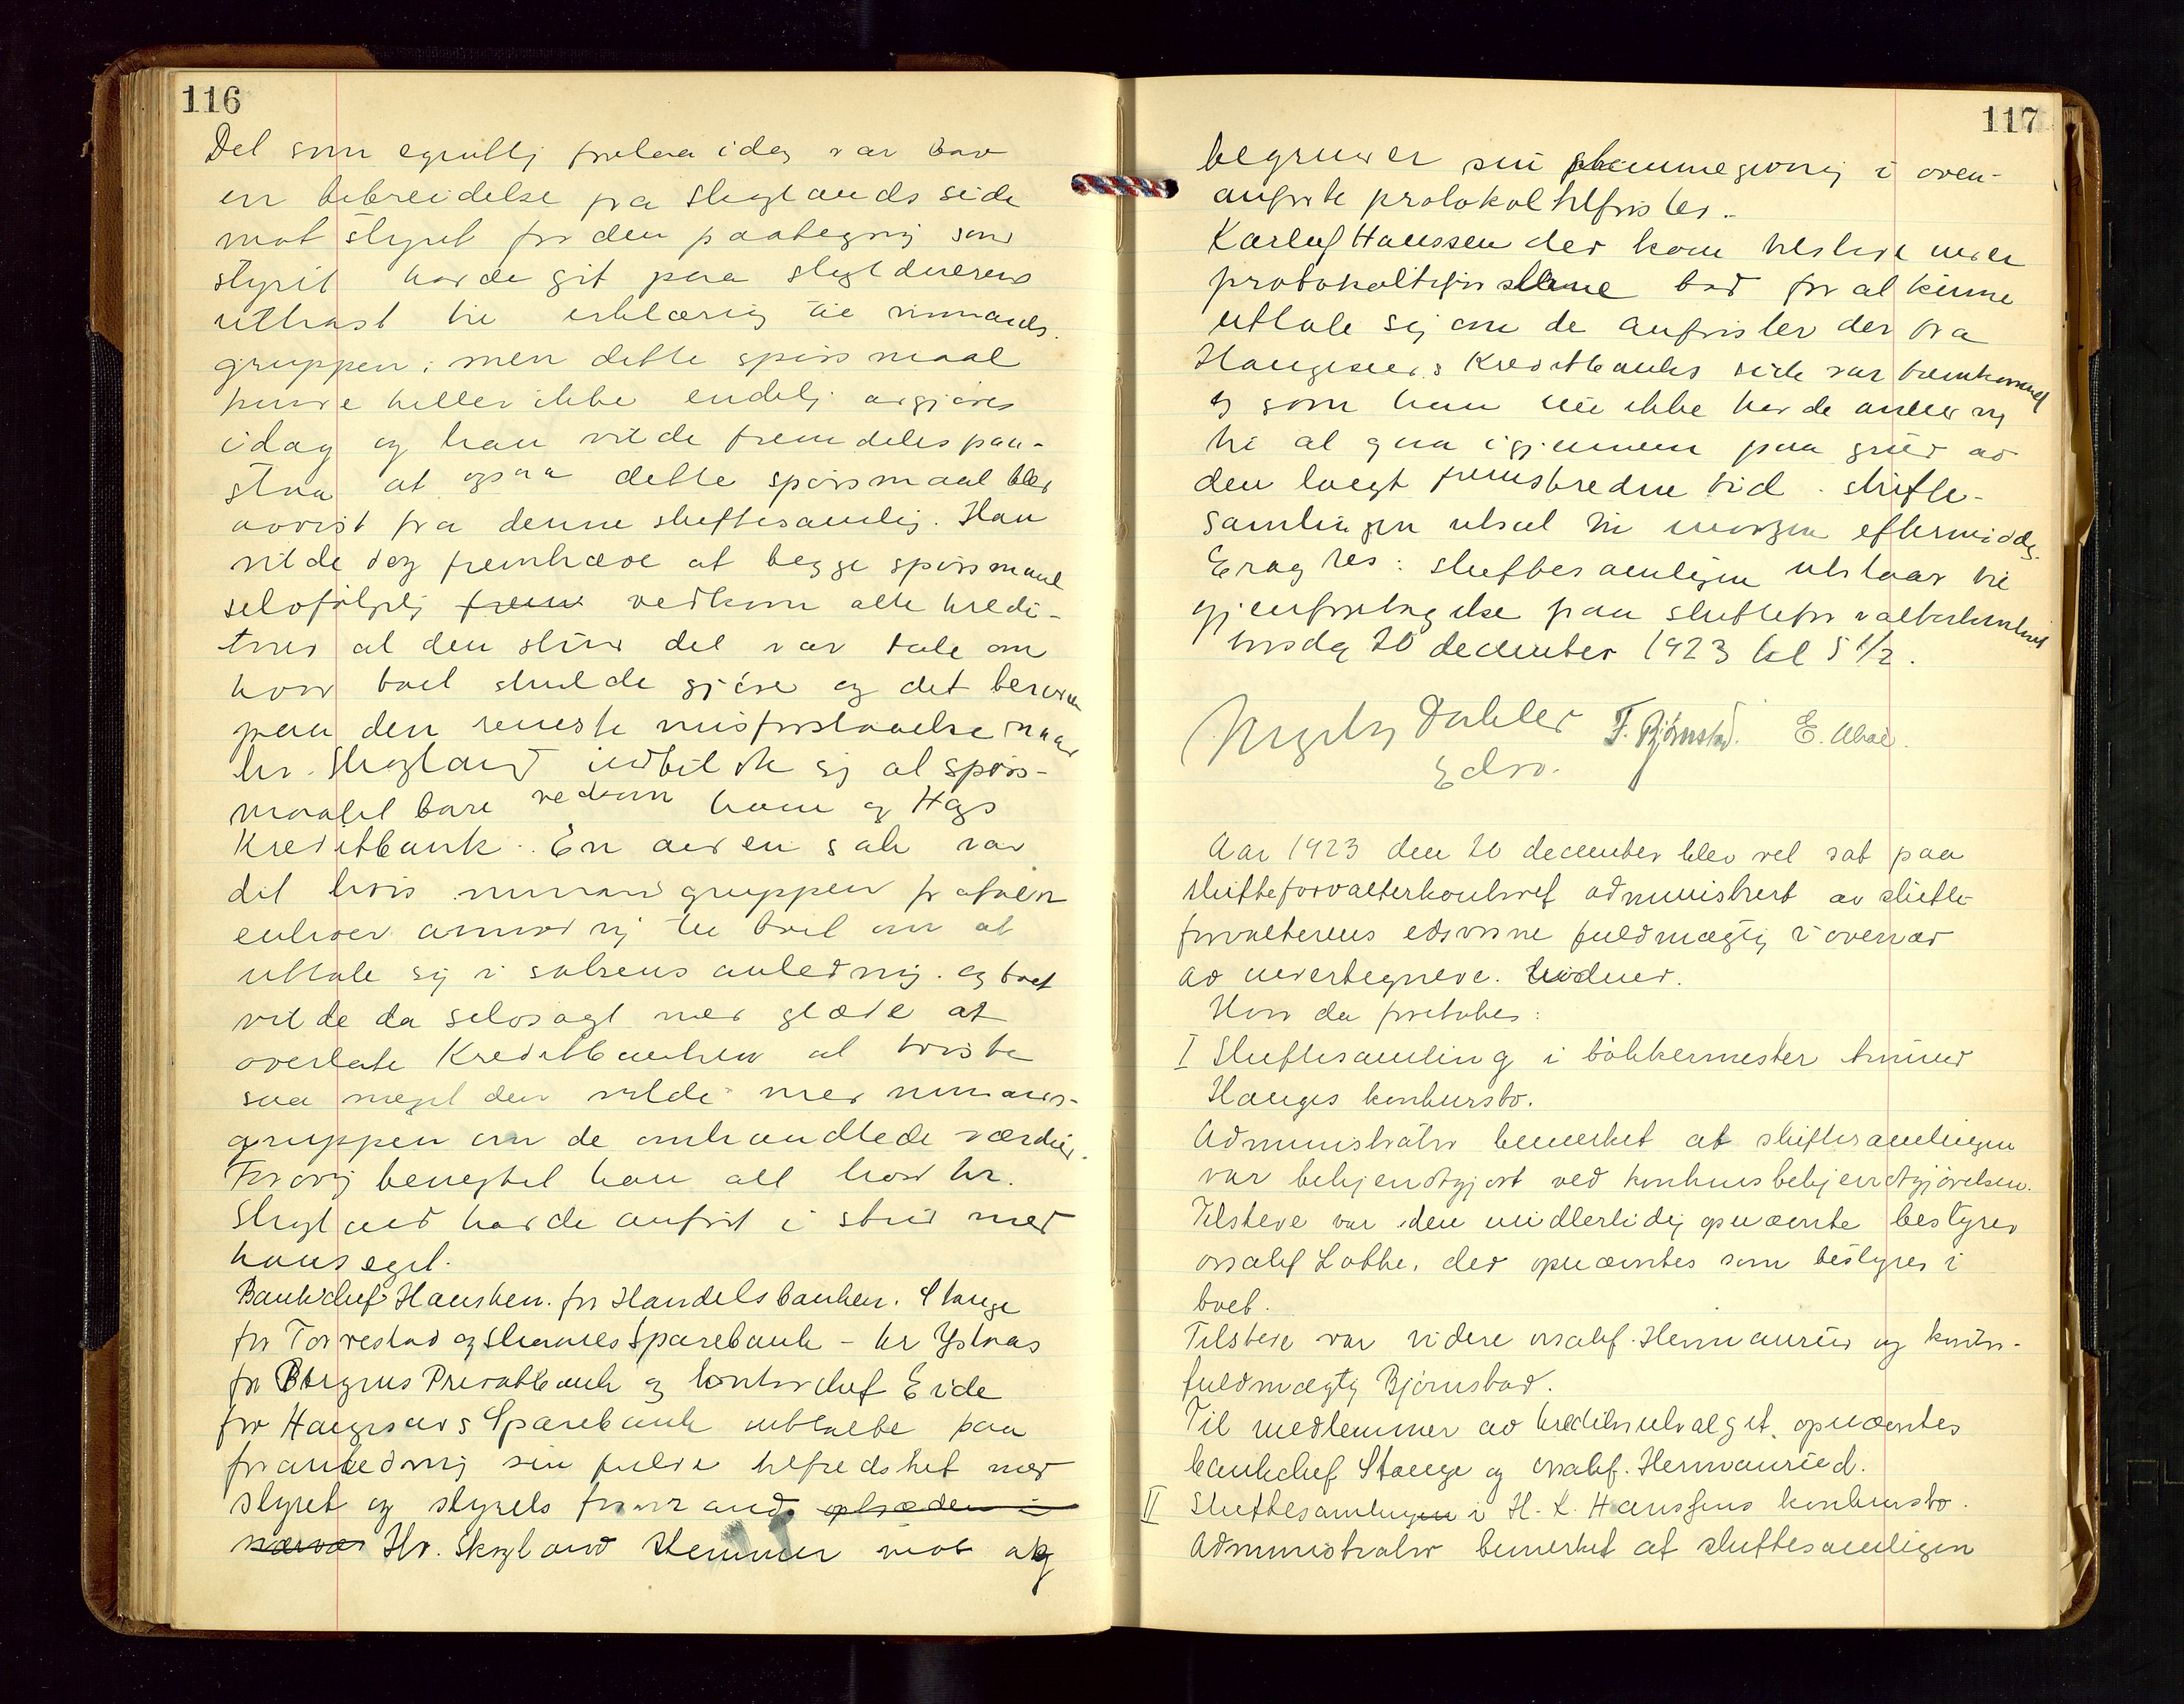 116
Det som egentlig forelaa idag var bare
en bebreidelse fra Skoglands side
mot styret for den paategning som
styret havde git paa skyldnerens
utkast til erklæring til mimands-
gruppen; men dette spørsmaal
kunde heller ikke endelig avgjøres
idag og han vilde fremdeles paa-
staa at ogsaa dette spørsmaal blev
avvist fra denne skiftesamling. Han
vilde dog fremhæve at begge spørsmaal
selvfølgelig vedkom alle kredi-
torer at den slurs det var tale om
hvor boet skulde gjøre og det beror
paa den reneste misforstaaelse naar
hr. Skogland indbildte sig at spørs-
maalet bare vedkom ham og Hgs
Kreditbank. En anden sak var
det hvis gruppen
enhver anmodning til boet om at
uttale sig i sakens anledning. og boet
vilde da selvsagt med glæde at
overlate Kreditbanken at trøste
saa meget den vilde med
gruppen om de omhandlede værdier.
Forøvrig benegtet han alt hvad hr.
Skogland havde anført i strid med
hans eget.
Bankchef Hausken for Handelsbanken. Stange
for Torvestad og Skaares Sparebank - hr Ystaas
for Bergens Privatbank og kontorchef Eide
for Haugesunds Sparebank uttalte paa
foranledning sin fulde tilfredshet med
styret og styrets formand optræden i
nærvær Hr. Skogland stemmer mot og
117
begrunder sin stemmegivning i oven-
anførte protokoltilførsler.
Karluf Hanssen der kom tilstede under
protokoltilførslerne bad for at kunne
uttale sig om de anførsler der fra
Haugesunds Kreditbanks side var fremkommet
og som han nu ikke havde anledning
til at gaa igjennem paa grund av
den langt fremskredne tid. skifte-
samlingen utsat til imorgen eftermiddag.
Eragtes: skiftesamlingen utstaar til
gjenforetagelse paa skifteforvalterkontoret
torsdag 20 december 1923 kl 5 1/2.
Dahler F. Bjørnstad. E.
Edsv.
Aar 1923 den 20 december blev ret sat paa
skifteforvalterkontoret administrert av skifte-
forvalterens edsvorne fuldmægtig i overvær
av undertegnede vidner.
Hvor da foretokes:
I Skiftesamling i bökkermester Amund
Hauges konkursbo.
Administrator bemerket at skiftesamlingen
var bekjendtgjort ved konkursbekjendtgjørelsen.
Tilstede var den midlertidig opnævnte bestyrer
orsakf Lothe, der opnævntes som bestyrer i
boet.
Tilstede var videre orsakf. Hermanrud og kontor-
fuldmægtig Bjørnstad.
Til medlemmer av kreditorutvalget opnævntes
bankchef Stange og orsakf. Hermanrud.
II Skiftesamlingen i H. K. Hanssens konkursbo.
Administrator bemerket at skiftesamlingen